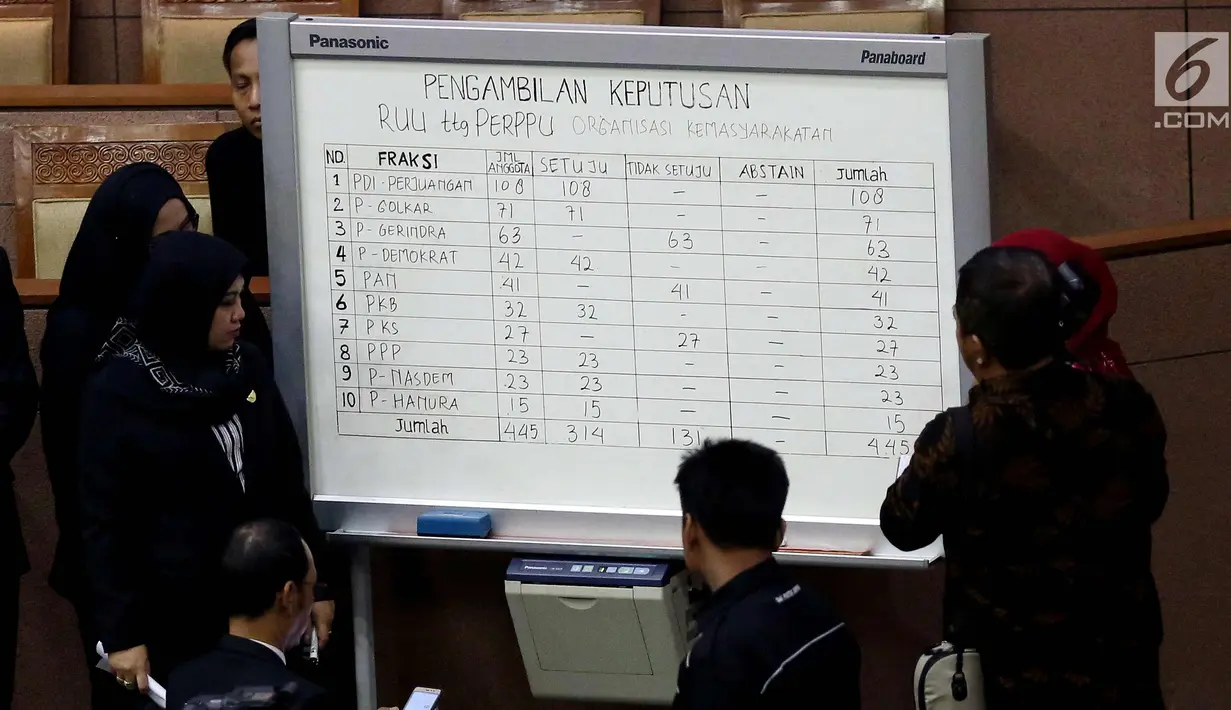 Panasonic Panaboard
PENGAMBILAN KEPUTUSAN
RUU ttg PERPPU ORGANISASI KEMASYARAKATAN
NO. FRAKSI JML ANGGOTA SETUJU TIDAK SETUJU ABSTAIN Jumlah
1 PDI-PERJUANGAN 108 108 - - 108
2 P-GOLKAR 71 71 - - 71
3 P-GERINDRA 63 - 63 - 63
4 P-DEMOKRAT 42 42 - - 42
5 PAN 41 - 41 - 41
6 PKB 32 32 - - 32
7 PKS 27 - 27 - 27
8 PPP 23 23 - - 23
9 P-NASDEM 23 23 - - 23
10 P-HANURA 15 15 - - 15
Jumlah 445 314 131 - 445
Panasonic
6
.COM